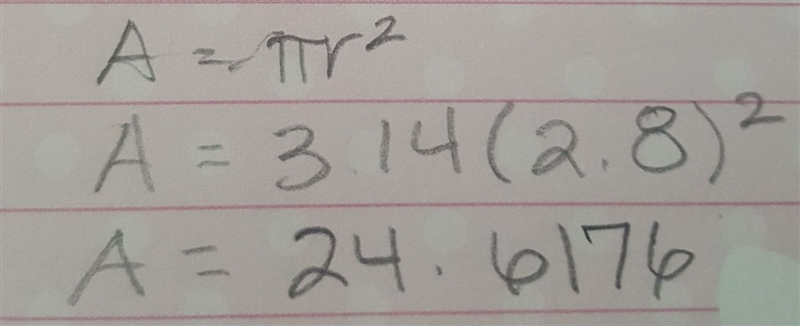 A = πr²
A = 3.14(2.8)²
A = 24.6176